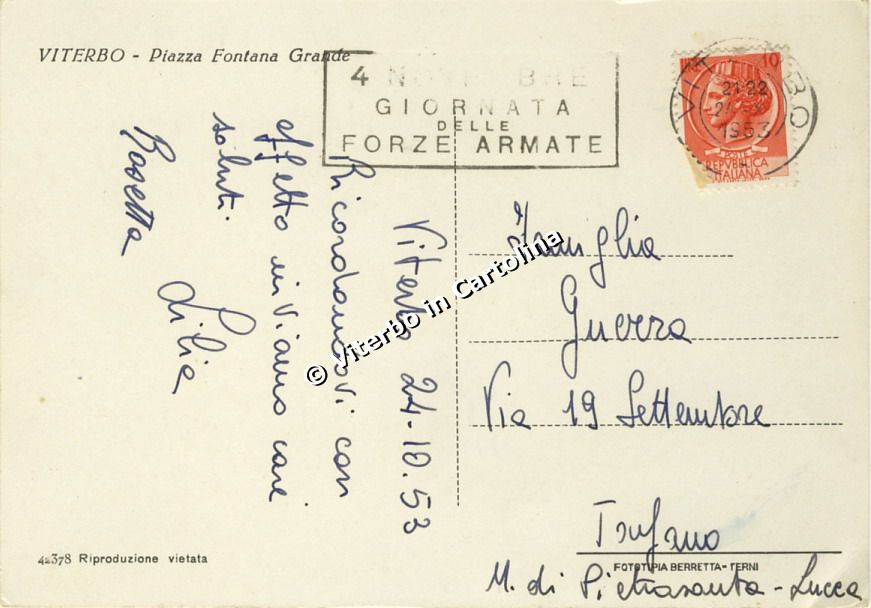 VITERBO - Piazza Fontana Grande
4 NOVEMBRE
GIORNATA
DELLE
FORZE ARMATE
VITERBO
21-22
1953
10
POSTE
REPVBBLICA
ITALIANA
Viterbo 24-10.53
Ricordandovi con
affetto inviamo cari
saluti.
Lilia
Rosetta
Famiglia
Guerra
Via 19 Settembre
M. di Pietrasanta - Lucca
42378 Riproduzione vietata
FOTOTIPIA BERRETTA - TERNI
© Viterbo in Cartolina